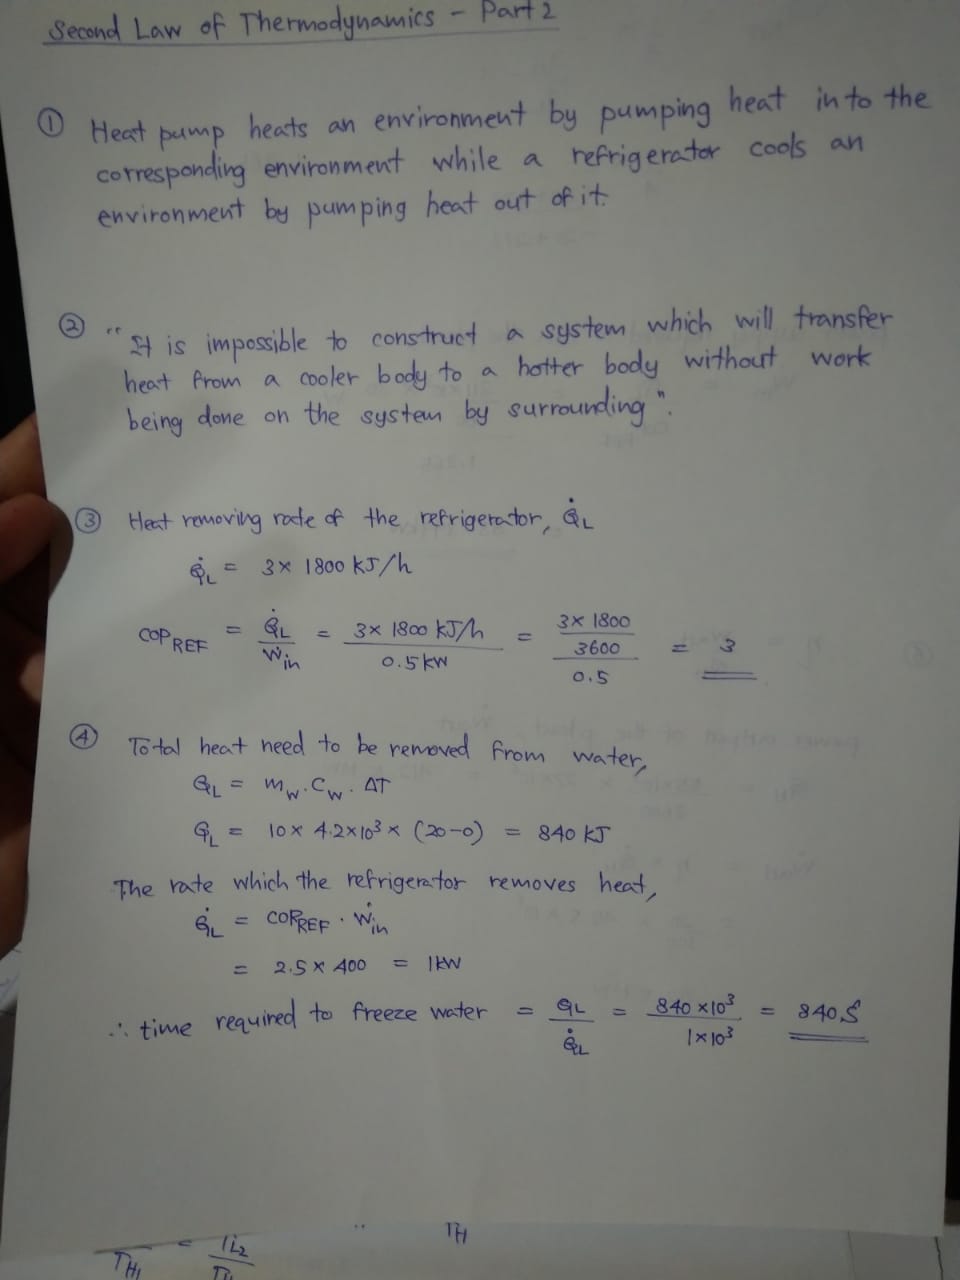 Second Law of Thermodynamics - Part 2
① Heat pump heats an environment by pumping heat into the
corresponding environment while a refrigerator cools an
environment by pumping heat out of it.
② "It is impossible to construct a system which will transfer
heat from a cooler body to a hotter body without work
being done on the system by surrounding".
③ Heat removing rate of the refrigerator, Q̇L
Q̇L = 3 × 1800 kJ/h
COP REF = Q̇L / Ẇin = 3 × 1800 kJ/h / 0.5 kW = 3 × 1800 / 3600 / 0.5 = 3
④ Total heat need to be removed from water,
QL = mw . Cw . ΔT
QL = 10 × 4.2 × 10³ × (20-0) = 840 kJ
The rate which the refrigerator removes heat,
Q̇L = COPREF . Ẇin
= 2.5 × 400 = 1 kW
∴ time required to freeze water = QL / Q̇L = 840 × 10³ / 1 × 10³ = 840 S
TH
TH1 = TL2